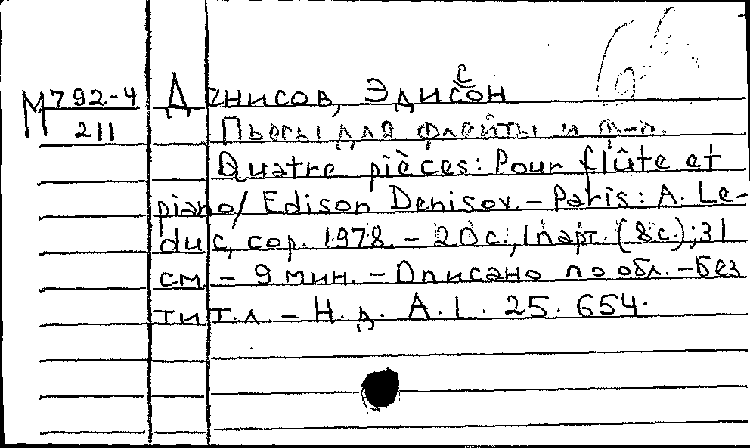 М 792-4
211
Денисов, Эдисон
Пьесы для флейты и ф-п.
Quatre pièces: Pour flûte et
piano / Edison Denisov. – Paris: A. Le-
duc, cop. 1978. – 20 с., 1 парт. (8 с.); 31
см. – 9 мин. – Описано по обл. – Без
тит. л. – Н. д. A. L. 25. 654.